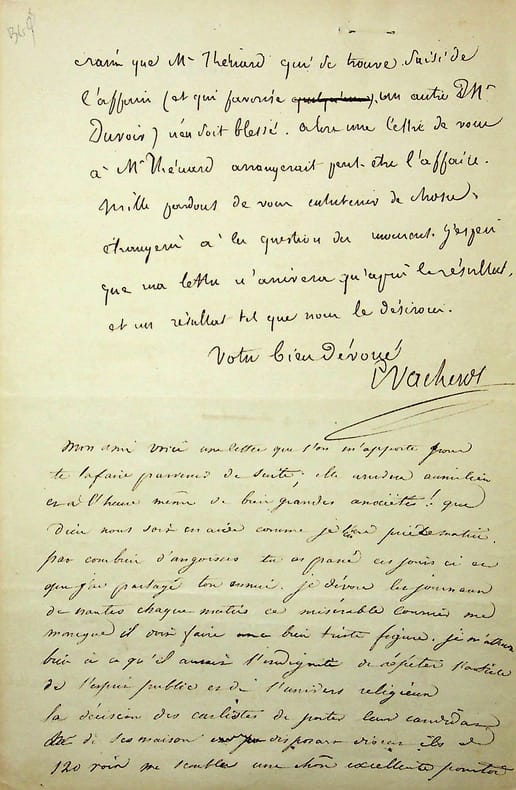 craint que Mr Thénard qui se trouve saisi de
l'affaire (et qui favorise quelqu'un), un autre Mr
Duvois) n'en soit blessé. alors une lettre de vous
à Mr Thénard arrangerait peut-être l'affaire.
Mille pardons de vous entretenir de choses
étrangères à la question du moment. J'espère
que ma lettre n'arrivera qu'après le résultat,
et un résultat tel que nous le désirons.
Votre bien dévoué
Vacherot
Mon ami voici une lettre que l'on m'apporte pour
te la faire parvenir de suite; elle
et à l'heure même de bien grandes anxiétés! que
Dieu nous soit en aide comme je l'ai prié ce matin.
par combien d'angoisses tu as passé ces jours ci et
que j'ai partagé ton ennui. je dévore les journaux
de nantes chaque matin ce misérable courrier me
manque il doit faire une bien triste figure. je m'attends
bien à ce qu'il aurait l'indignité de répéter l'article
de l'esprit public et de l'univers religieux
la décision des carlistes de porter leur candidat
de disposant ils
120 voix me semble une chose excellente